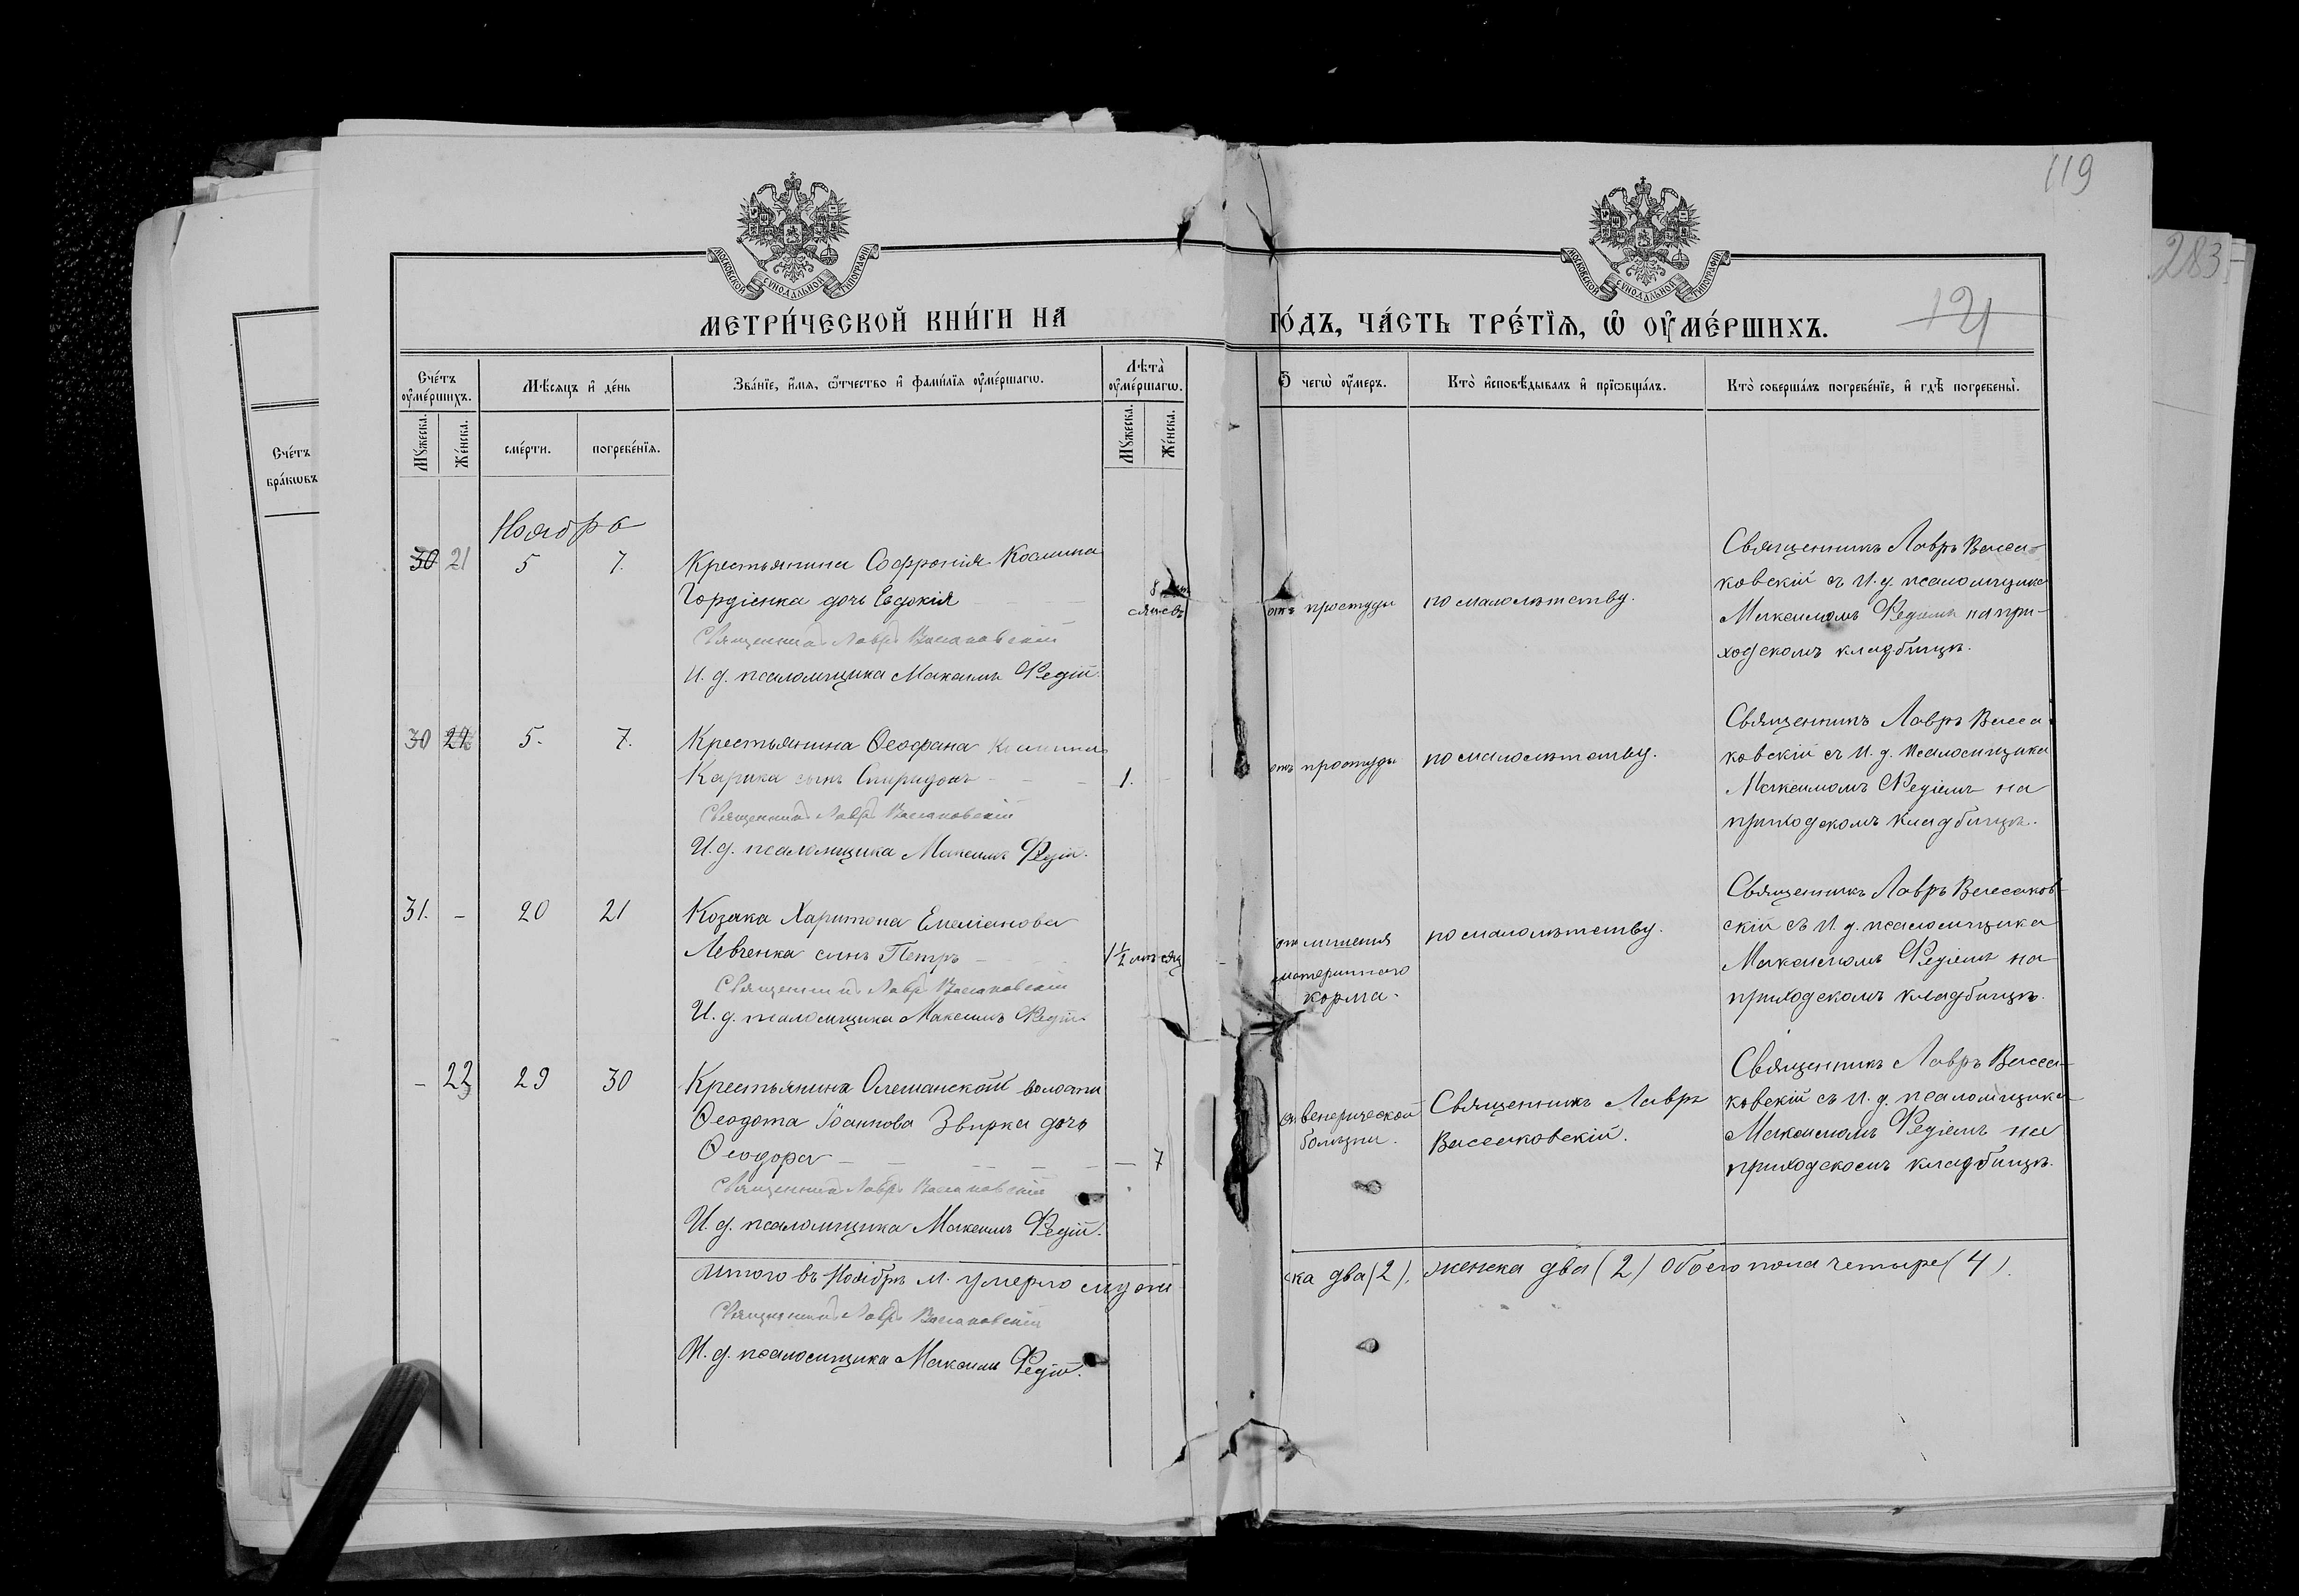 119
283
121
МОСКОВСКОЙ СУНОДАЛЬНОЙ ТИПОГРАФІИ
МОСКОВСКОЙ СУНОДАЛЬНОЙ ТИПОГРАФІИ
МЕТРИ́ЧЕСКОЙ КНИ́ГИ НА
ГО́ДЪ, ЧА́СТЬ ТРЕ́ТЇѦ, Ѡ҆ ОУ҆МЕ́РШИХЪ.
Сче́тъ
бра́кѡвъ
Сче́тъ оу҆ме́ршихъ.
Мꙋ́жеска.
Же́нска.
Мѣ́сѧцъ и҆ де́нь
сме́рти.
погребе́нїѧ.
Зва́нїе, и҆́мѧ, ѻ҆́тчество и҆ фами́лїѧ оу҆ме́ршагѡ.
Лѣта̀ оу҆ме́ршагѡ.
Мꙋ́жеска.
Же́нска.
Ѿ чегѡ̀ оу҆́меръ.
Кто̀ и҆сповѣ́дывалъ и҆ прїѡбща́лъ.
Кто̀ соверша́лъ погребе́нїе, и҆ гдѣ̀ погребены̀.
Ноябрь
30 21 5 7.
Крестьянина Софронія Космина
Гордіенка дочь Евдокія
Священникъ Лавръ Вассаковскій
И. д. псаломщика Максимъ Федій.
8
сяцевъ
отъ простуды
по малолѣтству.
Священникъ Лавръ Васса-
ковскій съ И. д. псаломщика
Максимомъ Федіемъ на при-
ходскомъ кладбищѣ.
30 5. 7.
Крестьянина Ѳеофана Космина
Карика сынъ Спиридонъ
Священникъ Лавръ Вассаковскій
И. д. псаломщика Максимъ Федій.
1.
отъ простуды
по малолѣтству.
Священникъ Лавръ Васса-
ковскій съ И. д. псаломщика
Максимомъ Федіемъ на
приходскомъ кладбищѣ.
31. – 20 21
Козака Харитона Емеліанова
Левченка сынъ Петръ
Священникъ Лавръ Вассаковскій
И. д. псаломщика Максимъ Федій.
1½ мѣсяц
отъ лишенія
материнаго
корма.
по малолѣтству.
Священникъ Лавръ Вассаков-
скій съ И. д. псаломщика
Максимомъ Федіемъ на
приходскомъ кладбищѣ.
– 22 29 30
Крестьянина Олешанской волости
Ѳеодота Іоаннова Звирка дочь
Ѳеодора
Священникъ Лавръ Вассаковскій
И. д. псаломщика Максимъ Федій.
– 7
от венерической
болѣзни.
Священникъ Лавръ
Вассаковскій.
Священникъ Лавръ Васса-
ковскій съ И. д. псаломщика
Максимомъ Федіемъ на
приходскомъ кладбищѣ.
Итого въ Ноябрѣ м. умерло мужес-
ка два (2). женска два (2) обоего пола четыре (4).
Священникъ Лавръ Вассаковскій
И. д. псаломщика Максимъ Федій.